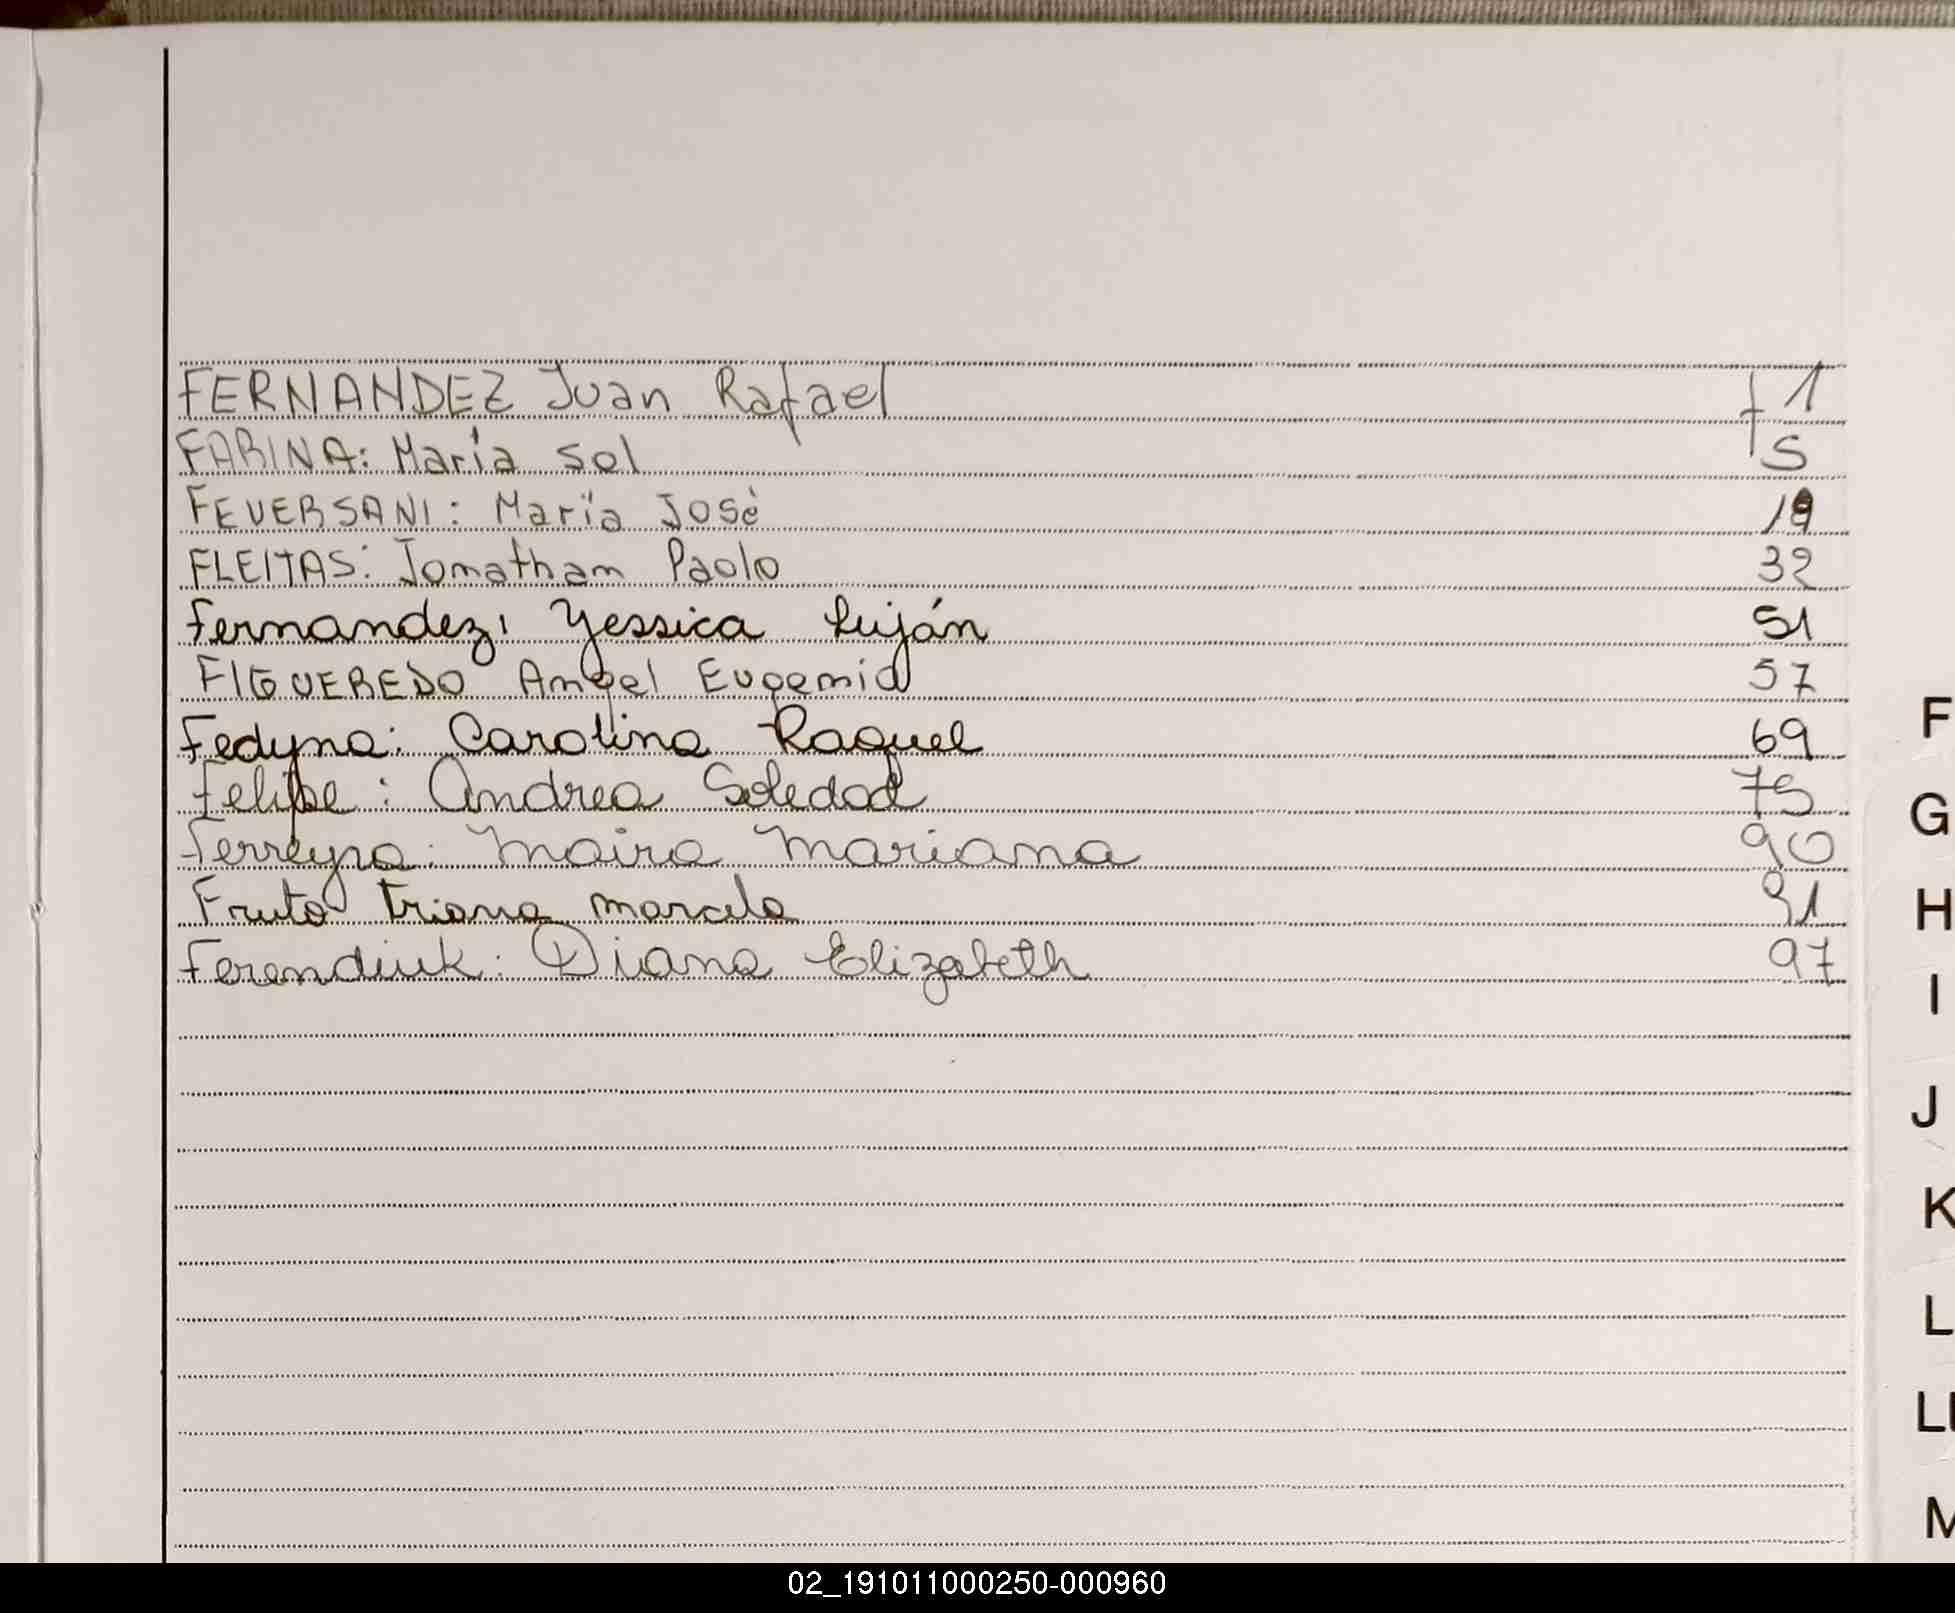 FERNANDEZ Juan Rafael f 1
FARINA: María Sol 5
FEVERSANI: María José 19
FLEITAS: Jonathan Paolo 32
Fernandez, Yessica Luján 51
FIGUEREDO Angel Eugenio 57
Fedyna: Carolina Raquel 69
Felipe: Andrea Soledad 75
Ferreyra: Maira Mariana 90
Fruto Triana Marcela 91
Ferendiuk: Diana Elizabeth 97
F
G
H
I
J
K
L
Ll
M
02_191011000250-000960